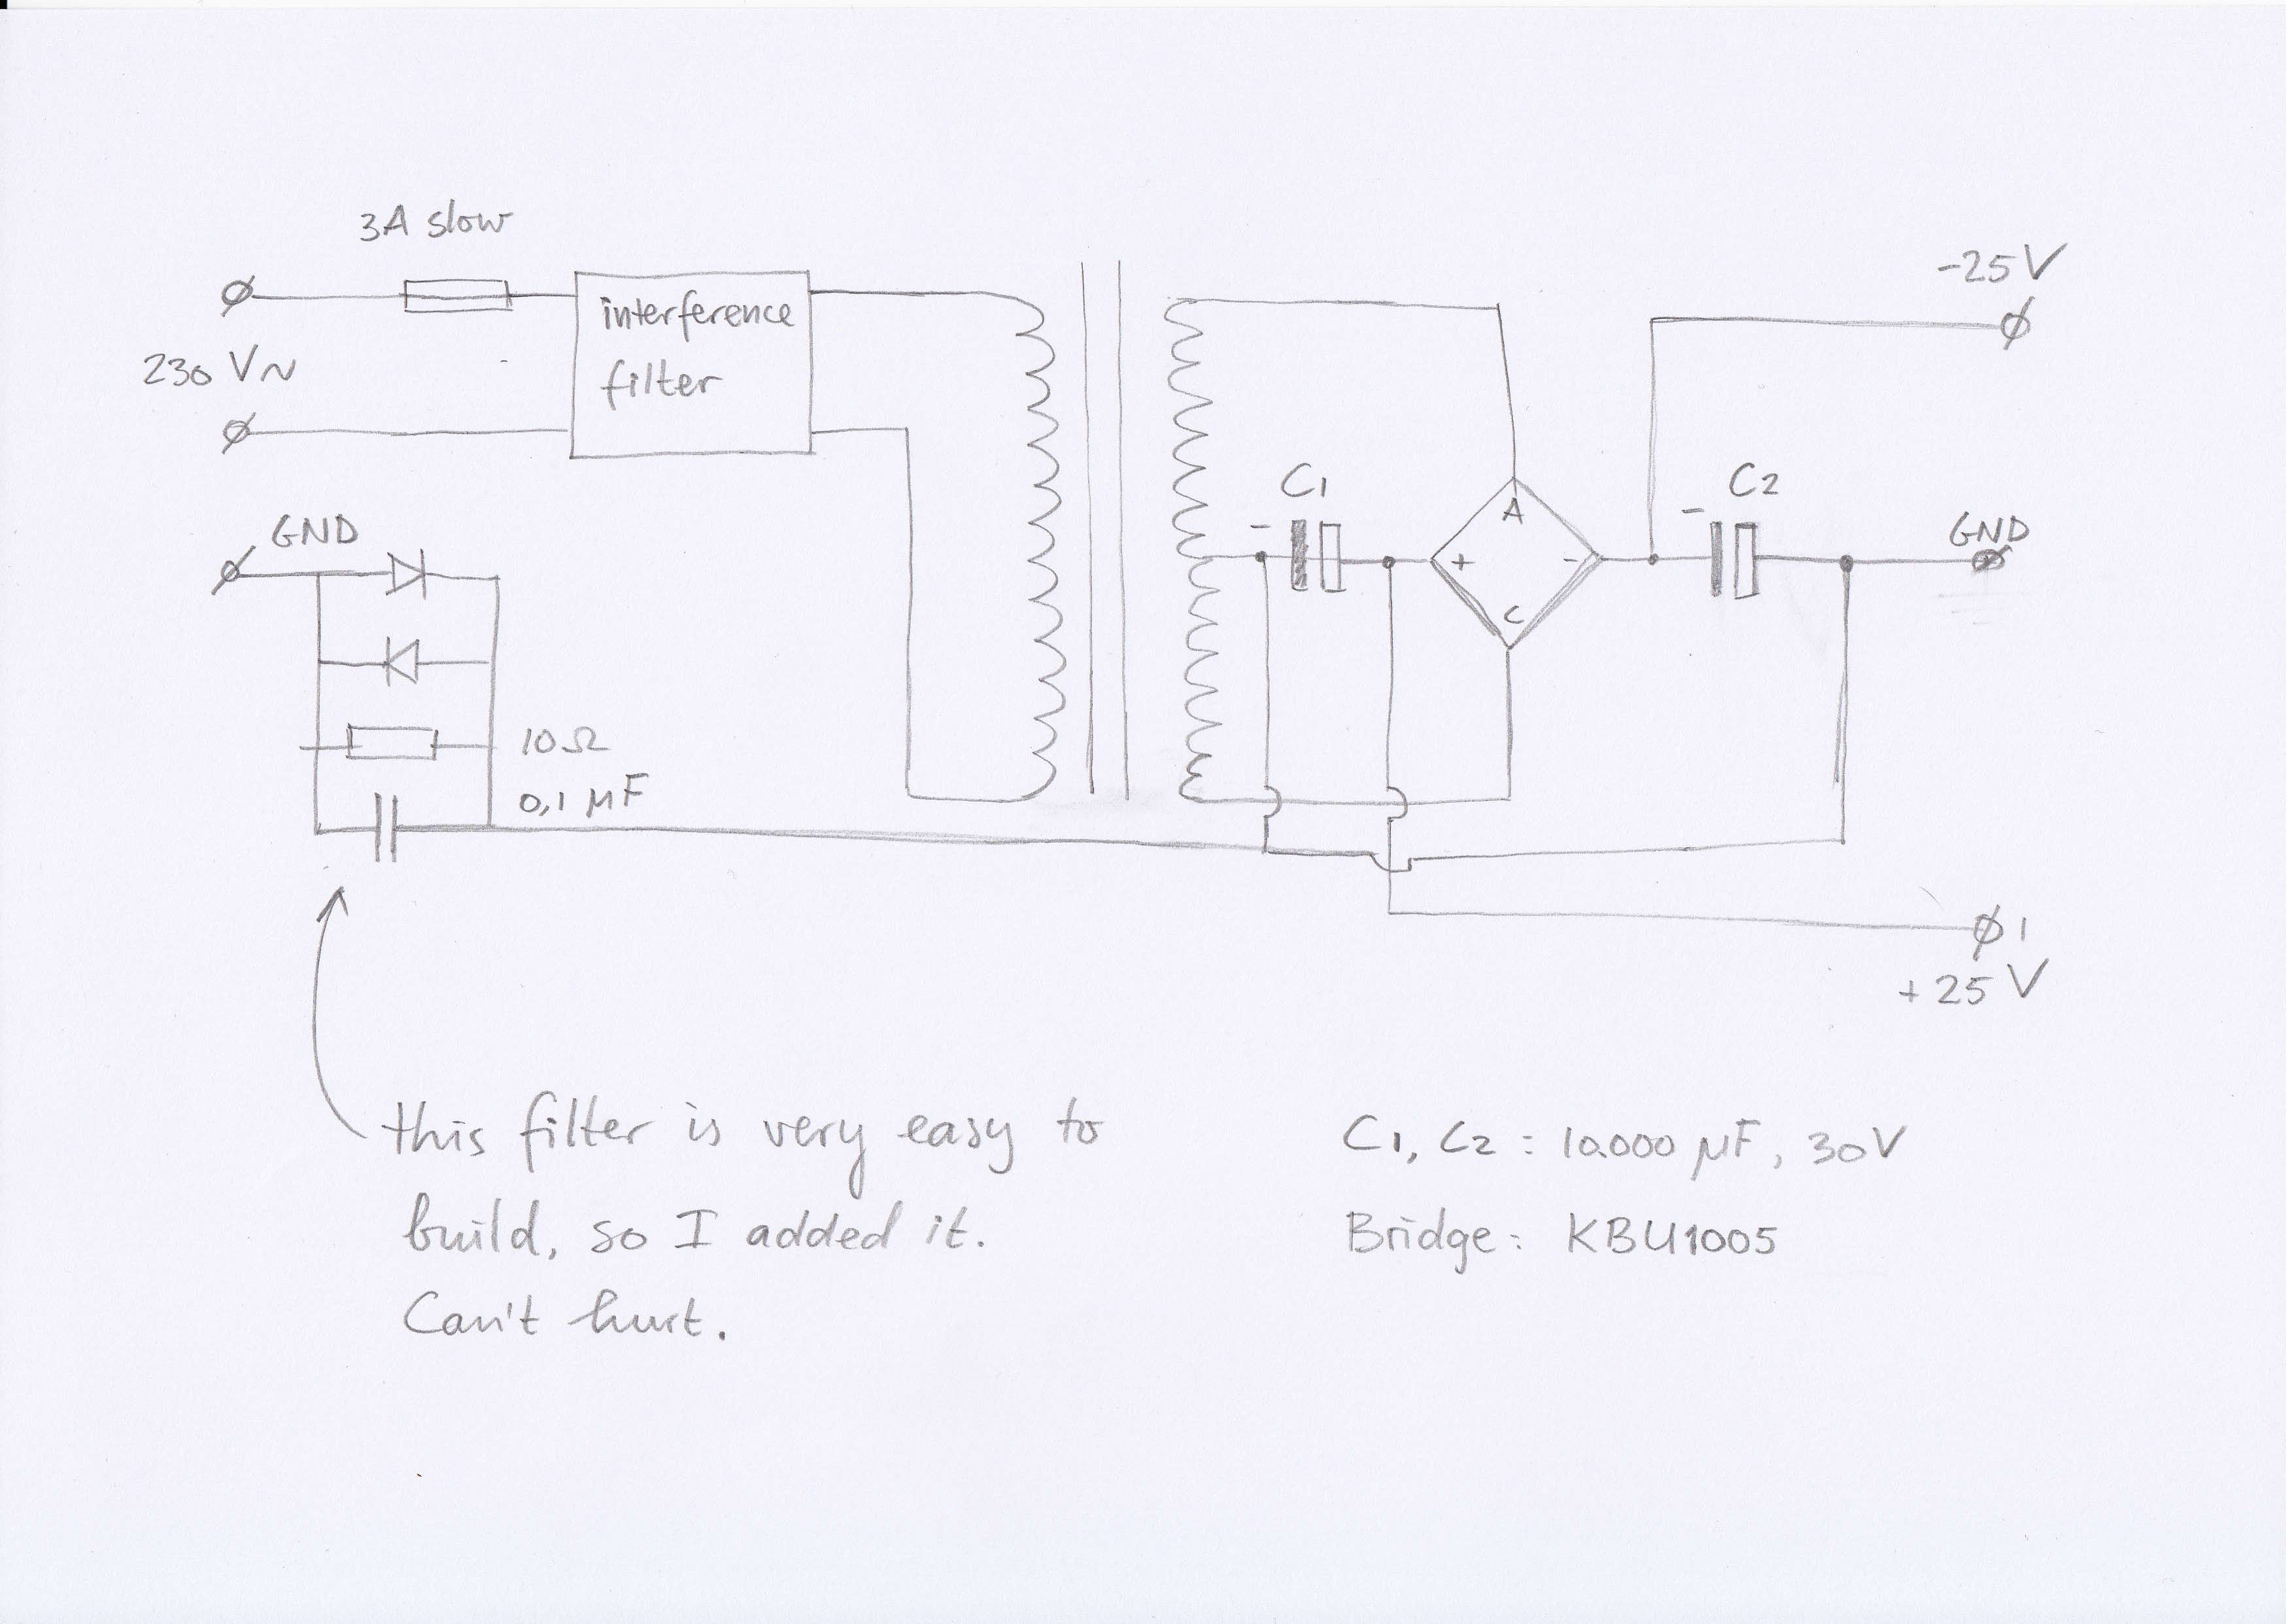 3A slow
-25 V
interference
filter
230 V~
C1
C2
A
-
-
GND
GND
+
-
C
10Ω
0,1 µF
1
+25 V
this filter is very easy to
build, so I added it.
Can't hurt.
C1, C2 : 10.000 µF, 30V
Bridge : KBU1005